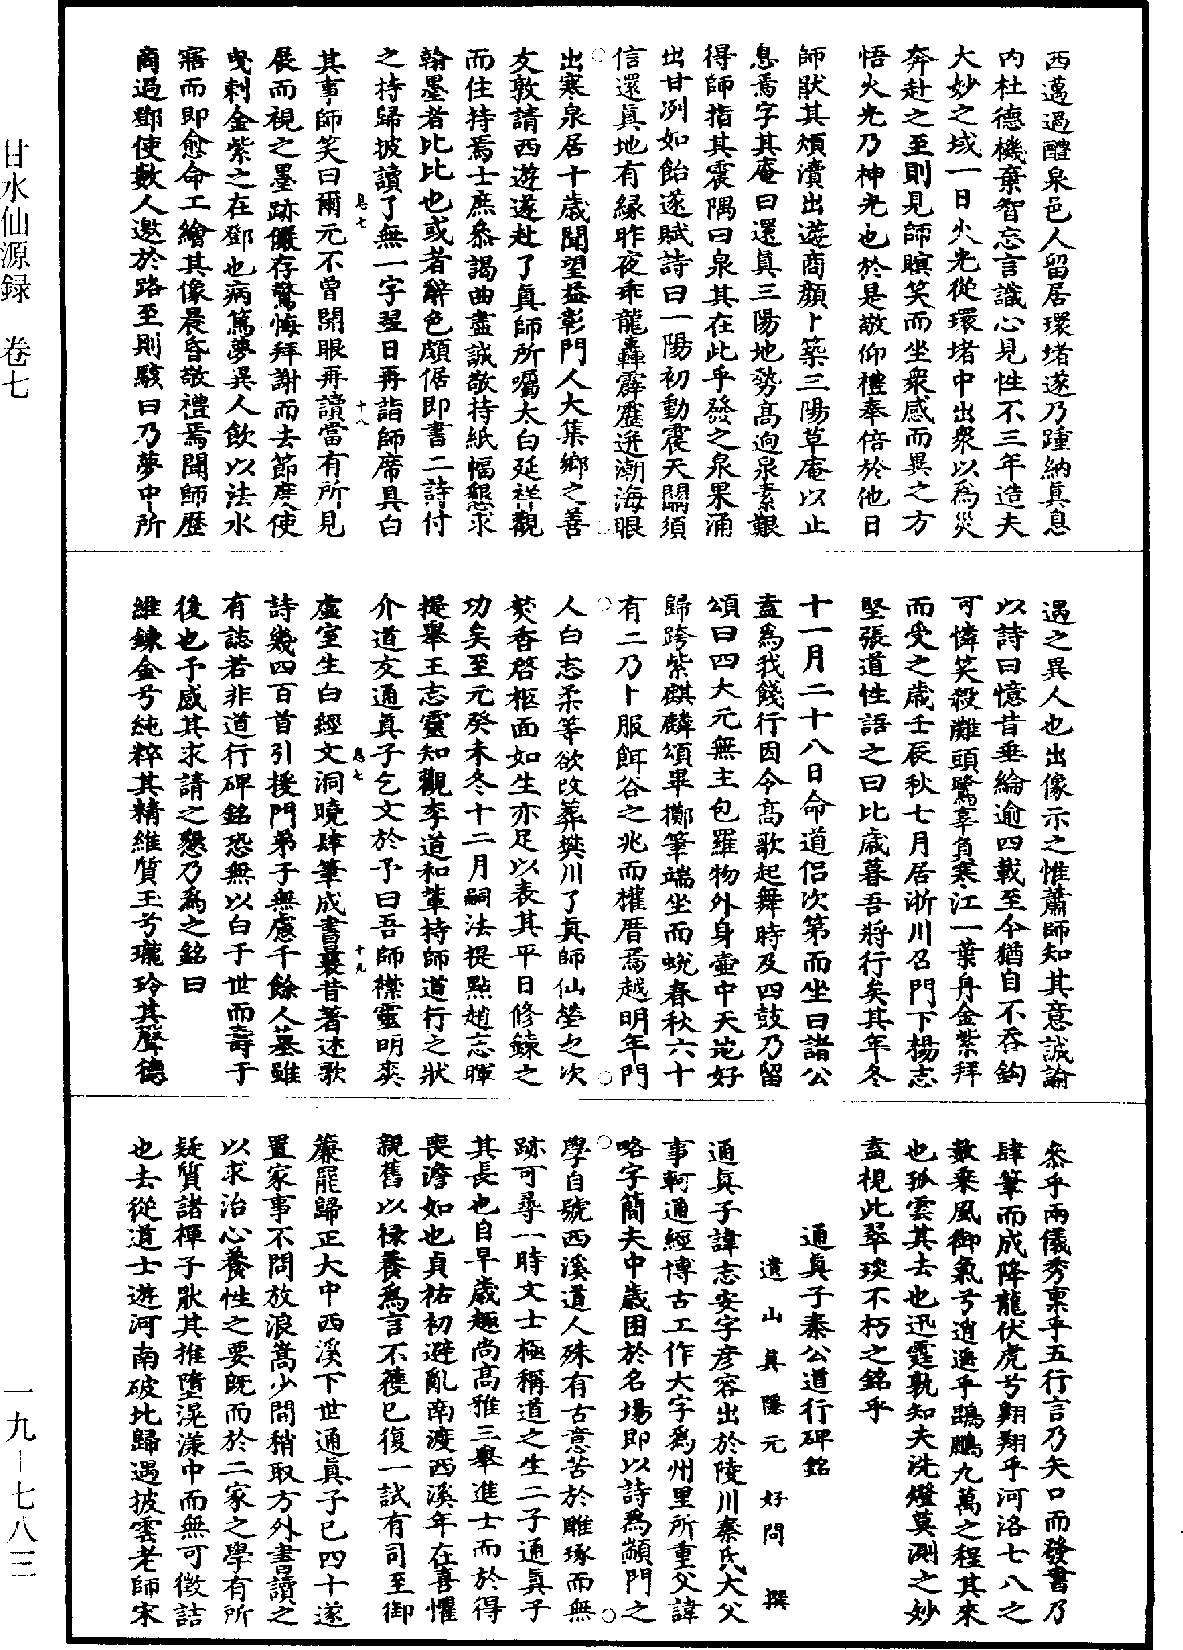 西邁過醴泉邑人留居環堵遂乃踵納真息
內杜德機棄智忘言識心見性不三年造夫
大妙之域一日火光從環堵中出眾以為災
奔赴之至則見師瞑笑而坐眾感而異之方
悟火光乃神光也於是敬仰禮奉倍於他日
師猒其煩瀆出遊商顏卜築三陽草庵以止
息焉字其庵曰還真三陽地勢高迥泉素艱
得師指其震隅曰泉其在此乎發之泉果涌
出甘冽如飴遂賦詩曰一陽初動震天關須
信還真地有緣昨夜乖龍轟霹靂迸潮海眼
出寒泉居十歲聞望益彰門人大集鄉之善
友敦請西遊遂赴了真師所囑太白延祥觀
而住持焉士庶叅謁曲盡誠敬持紙幅懇求
翰墨者比比也或者辭色頗倨即書二詩付
之持歸披讀了無一字翌日再詣師席具白
息七 十八
其事師笑曰爾元不曾開眼再讀當有所見
展而視之墨跡儼存驚悔拜謝而去節度使
曳剌金紫之在鄧也病篤夢異人飲以法水
寤而即愈命工繪其像晨昏敬禮焉聞師歷
商過鄧使數人邀於路至則駭曰乃夢中所
遇之異人也出像示之惟蕭師知其意誠諭
以詩曰憶昔垂綸逾四載至今猶自不吞鈎
可憐笑殺灘頭鷺辜負寒江一葉舟金紫拜
而受之歲壬辰秋七月居淅川召門下楊志
堅張道性語之曰比歲暮吾將行矣其年冬
十一月二十八日命道侶次第而坐曰諸公
盍為我餞行因今高歌起舞時及四鼓乃留
頌曰四大元無主包羅物外身壺中天地好
歸跨紫麒麟頌畢擲筆端坐而蛻春秋六十
有二乃卜服餌谷之兆而權厝焉越明年門
人白志柔等欲改葬樊川了真師仙塋之次
焚香啓柩面如生亦足以表其平日修鍊之
功矣至元癸未冬十二月嗣法提點趙志暉
提舉王志靈知觀李道和輩持師道行之狀
介道友通真子乞文於予曰吾師襟靈明爽
息七 十九
虛室生白經文洞曉肆筆成書曩昔著述歌
詩幾四百首引援門弟子無慮千餘人墓雖
有誌若非道行碑銘恐無以白于世而壽于
後也予感其求請之懇乃為之銘曰
維鍊金兮純粹其精維質玉兮瓏玲其聲德
叅乎兩儀秀稟乎五行言乃矢口而發書乃
肆筆而成降龍伏虎兮翱翔乎河洛七八之
數乘風御氣兮逍遙乎鵾鵬九萬之程其來
也孤雲其去也迅霆孰知夫洗燈莫測之妙
盍視此翠琰不朽之銘乎
通真子秦公道行碑銘
遺山真隱元好問撰
通真子諱志安字彥容出於陵川秦氏大父
事軻通經博古工作大字為州里所重父諱
略字簡夫中歲困於名場即以詩為顓門之
學自號西溪道人殊有古意苦於雕琢而無
跡可尋一時文士極稱道之生二子通真子
其長也自早歲趣尚高雅三舉進士而於得
喪澹如也貞祐初避亂南渡西溪年在喜懼
親舊以祿養為言不獲已復一試有司至御
簾罷歸正大中西溪下世通真子已四十遂
置家事不問放浪嵩少間稍取方外書讀之
以求治心養性之要既而於二家之學有所
疑質諸禪子猒其推墮滉漾中而無可徵詰
也去從道士遊河南破北歸遇披雲老師宋
甘水仙源録 卷七
一九—七八三